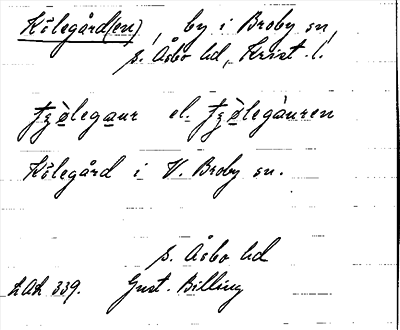 Kölegård(en), by i Broby sn,
s. Åsbo hd, Krist. l.
tʒò̱lega̱ur el. tʒò̱legàuren
Kölegård i V. Broby sn.
s. Åsbo hd
LAL 339. Gust. Billing